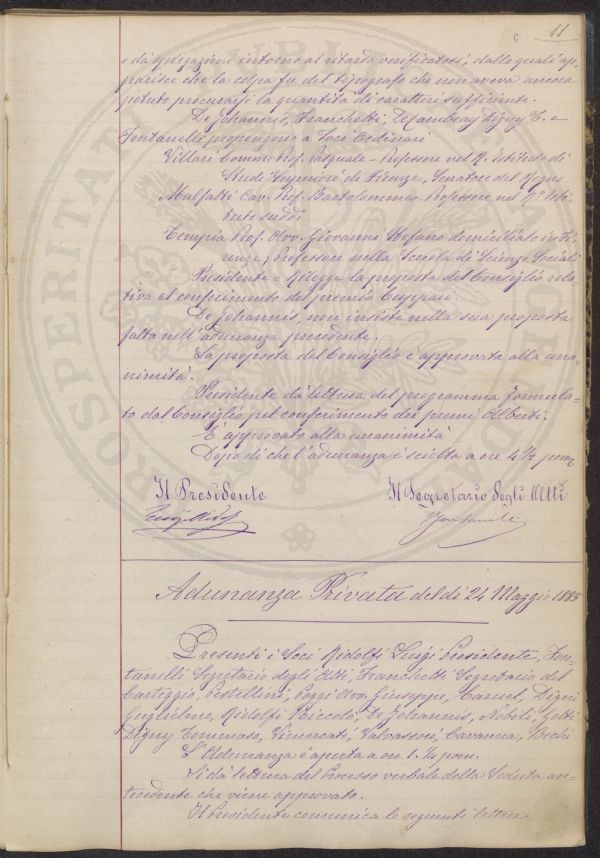 6 11
e dà spiegazioni intorno al ritardo verificatosi, dalle quali ap-
parisce che la colpa fu del tipografo che non aveva ancora
potuto procurarsi la quantità di caratteri sufficiente.
De Johannis, Franchetti, De Cambray Digny T. e
Fontanelli propongono a Soci Ordinari
Villari Comm. Prof. Pasquale - Professore nel R. Istituto di
Studi Superiori di Firenze, Senatore del Regno
Malfatti Cav. Prof. Bartolommeo Professore nel R. Isti-
tuto sudd.
Tempia Prof. Avv. Giovanni Stefano domiciliato in Fi-
renze, Professore nella Scuola di Scienze Sociali
Presidente = Rilegge la proposta del Consiglio rela-
tiva al conferimento del premio Cuppari.
De Johannis, non insiste nella sua proposta
fatta nell'adunanza precedente.
La proposta del Consiglio è approvata alla una-
nimità.
Presidente dà lettura del programma formula-
to dal Consiglio pel conferimento dei premi Alberti.
È approvato alla unanimità
Dopo di che l'adunanza è sciolta a ore 4 1/2 pom.
Il Presidente Il Segretario degli Atti
Adunanza Privata del dì 24 Maggio 1885
Presenti i Soci Ridolfi Luigi Presidente, Fon-
tanelli Segretario degli Atti, Franchetti Segretario del
Carteggio, Pestellini, Poggi Avv. Giuseppe, Caruel, Digny
Guglielmo, Ridolfi Niccolò, De Johannis, Nobili, Gotti
Digny Tommaso, Vimercati, Valvassori, Cavanna, Bechi
L'Adunanza è aperta a ore 1. 1/4 pom.
Si dà lettura del Processo verbale della Seduta an-
tecedente che viene approvato.
Il Presidente comunica le seguenti lettere